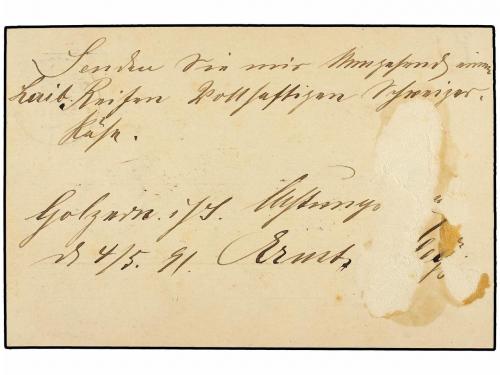 Senden Sie mir Umgehend einen
Laib Reifen Vollsaftigen Schweizer-
Käse.
Golzern i/S. Achtungs
d 4/5. 91.